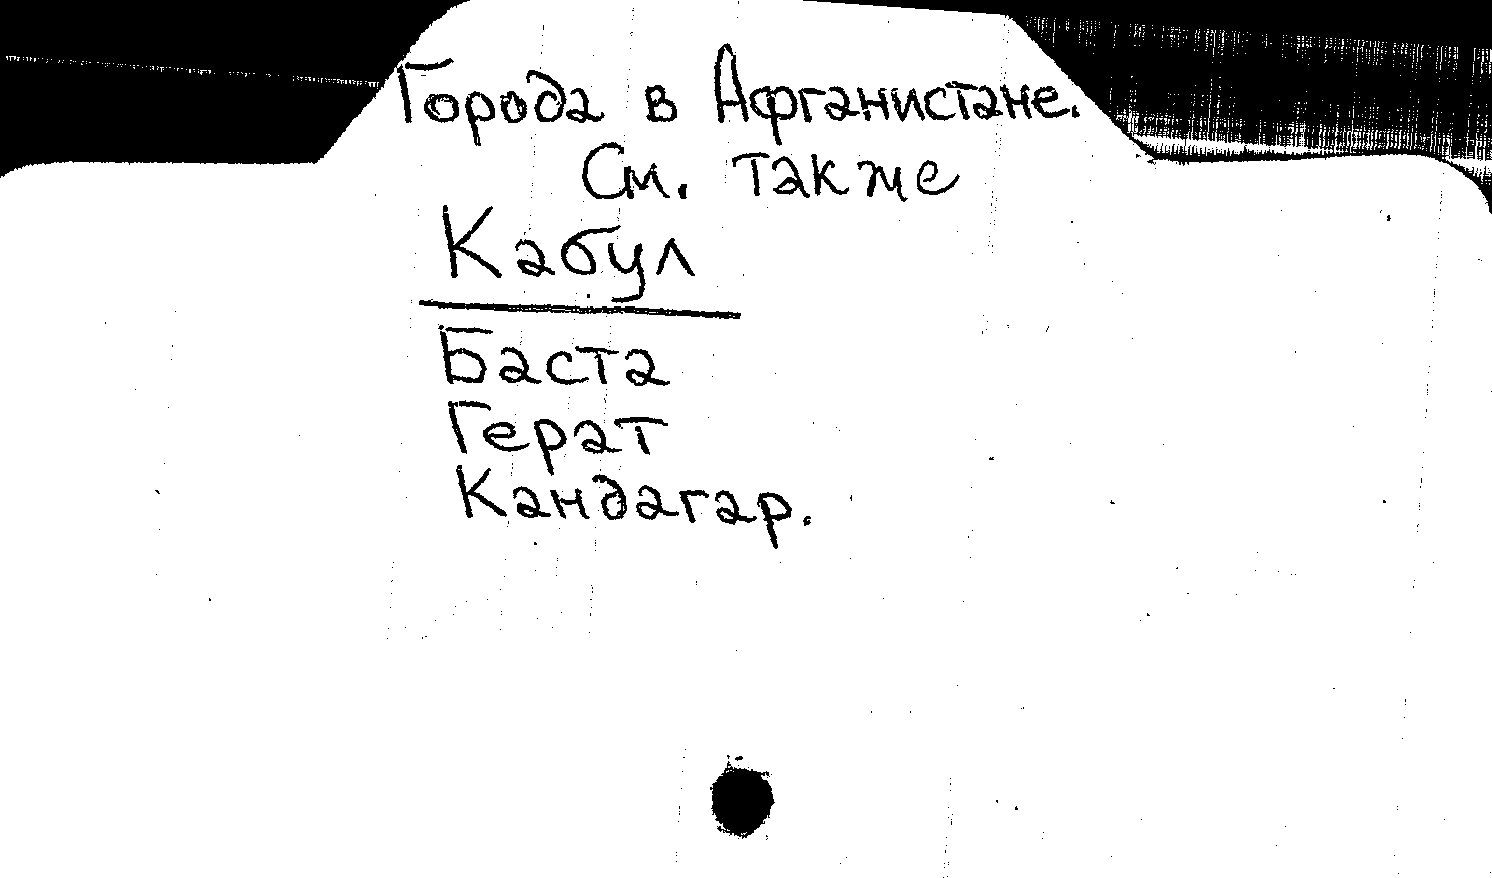 Города в Афганистане.
См. также
Кабул
Баста
Герат
Кандагар.